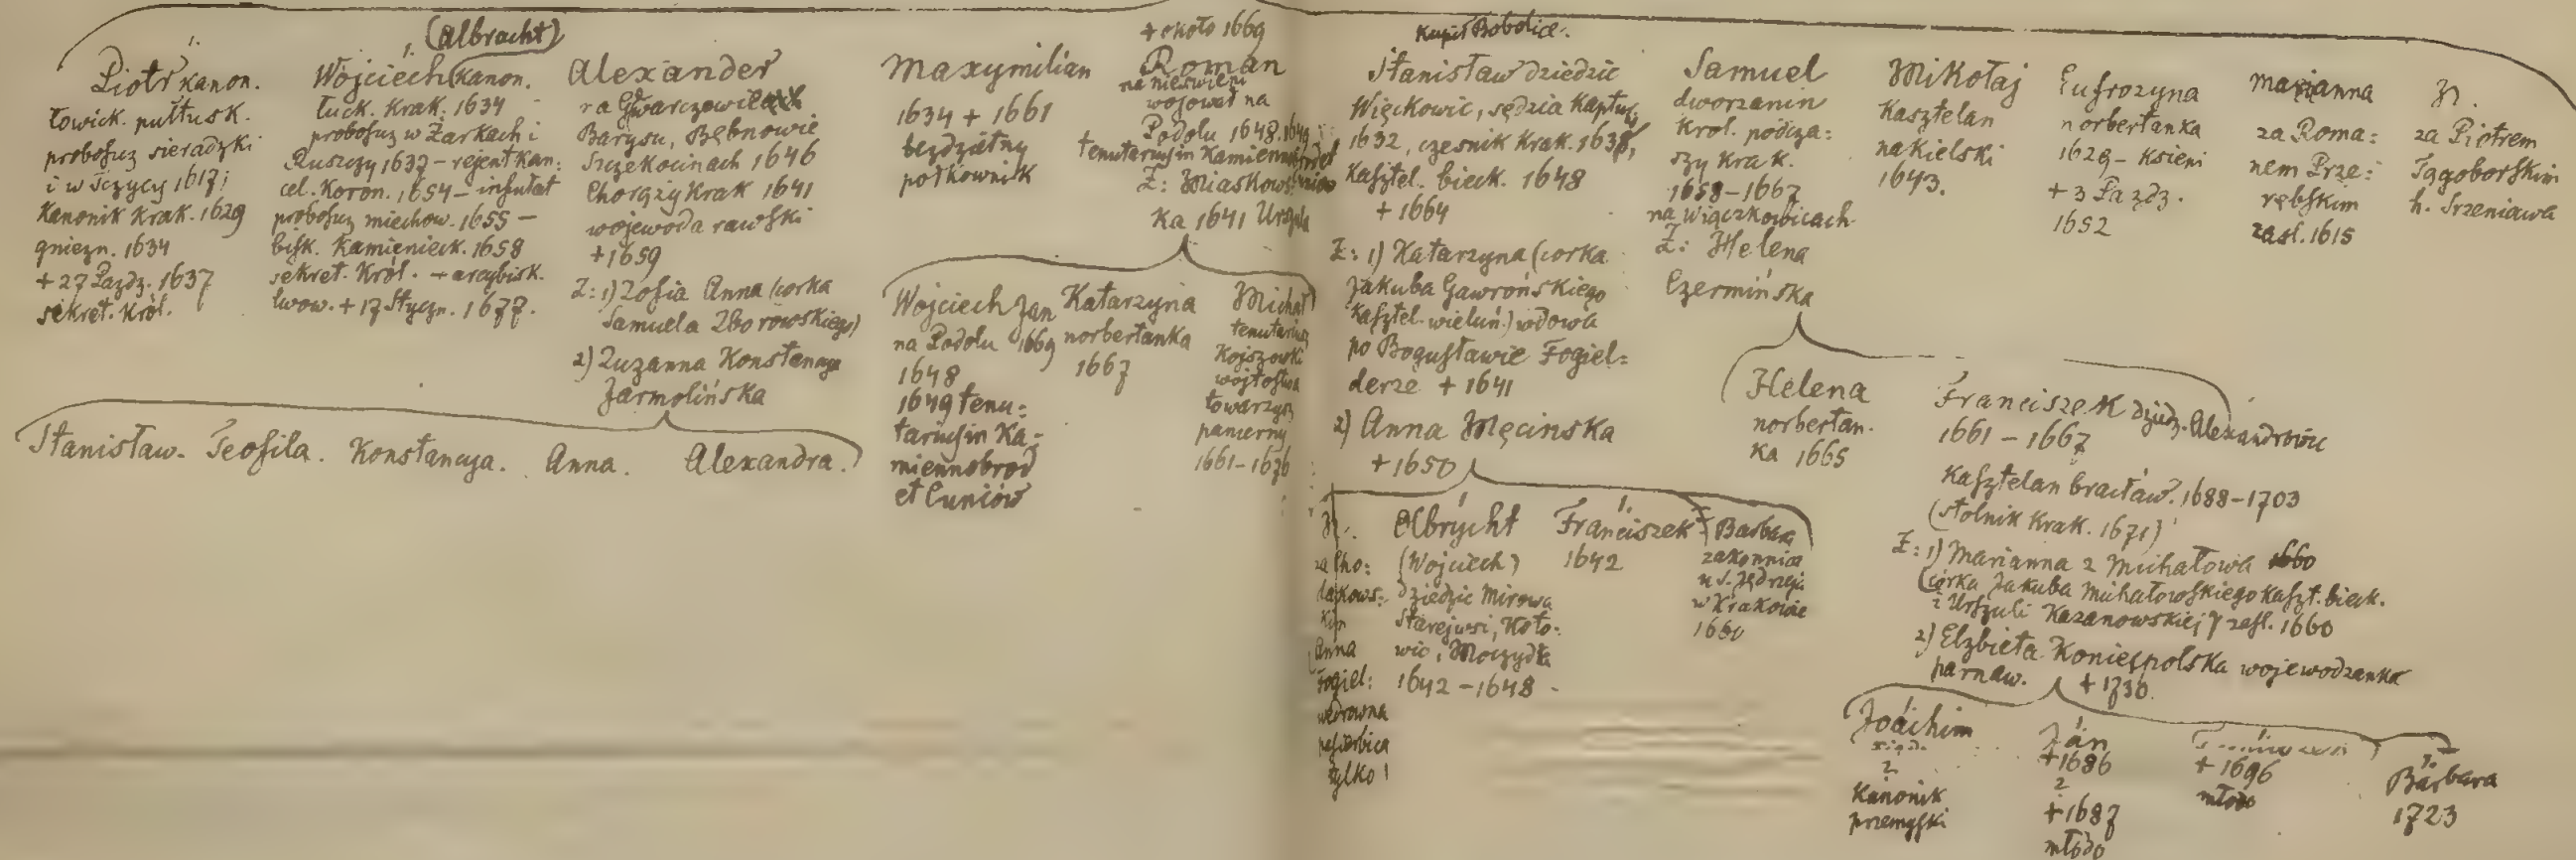 1.
Piotr kanon.
łowick. pułtusk.
proboszcz sieradzki
i w Łęczycy 1617;
Kanonik Krak. 1629
gniezn. 1634
+ 27 Pazdz. 1637
sekret. Król.
1. (Albracht)
Wojciech (kanon.
łuck. Krak. 1634
proboszcz w Żarkach i
Ruszczy 1637 – rejent kan:
cel. Koron. 1654 – infułat
proboszcz miechow. 1655 –
bisk. Kamienieck. 1658
sekret. Król. – arcybisk.
lwow. + 17 Styczn. 1677.
Alexander
na
Barysu, Bębnowie
Szczekocinach 1646
Chorąży Krak 1641
wojewoda rawski
+ 1659
Ż: 1) Zofia Anna (corka
Samuela Zborowskiego)
2) Zuzanna Konstancya
Jarmolińska
Stanisław. Teofila. Konstancya. Anna. Alexandra.
Maxymilian
1634 + 1661
bezdzietny
połkownik
+ około 1669
Roman
wojował na
Podolu 1648. 1649
Ż: Miaskows
ka 1641 Urszula
Wojciech Jan
na Podolu 1669
1648
1649 tenu:
tariusz in Ka:
miennobrod
et Cuniów
Katarzyna
norbertanka
1667
Michał
tenutariusz
wojtostwa
towarzysz
pancerny
1661–1676
kupił Bobolice.
Stanisław dziedzic
Więckowic, sędzia Kaptur.
1632, czesnik Krak. 1638,
Kasztel. bieck. 1648
+ 1664
Ż: 1) Katarzyna (corka
Jakuba Gawrońskiego
Kasztel. wieluń.) wdowa
po Bogusławie Fogiel:
derze + 1641
2) Anna Męcinska
+ 1650
N.
za Cho:
dakows:
kim
(Anna
Fogiel:
wedrowna
pasierbica
tylko!
Olbrycht
(Wojciech)
dziedzic Mirowa
Starejwsi, Koto:
wic, Moczydła
1642 – 1648 –
1.
Franciszek
1642
Barbara
zakonnica
u S. Jędrzeja
w Krakowie
1660
Samuel
dworzanin
Krol. podcza:
szy krak.
1658–1667
na Więczkowicach
Ż: Helena
Czermińska
Helena
norbertan.
ka 1665
Franciszek dziedz. Alexandrowic
1661 – 1667
Kasztelan bracław. 1688–1703
(stolnik Krak. 1671)
Ż: 1) Marianna z Michałowa 1660
(córka Jakuba Michałowskiego kaszt. bieck.
i Urszuli Kazanowskiej) zasl. 1660
2) Elzbieta Koniecpolska wojewodzanka
parnaw. + 1730.
Joachim
2
Kanonik
przemyski
Ján
+ 1686
2
+ 1687
młodo
+ 1696
młodo
Barbara
1723
Mikołaj
Kasztelan
nakielski
1643.
Eufrozyna
norbertanka
1629 – Ksieni
+ 3 Pazdz.
1652
Marianna
za Roma:
nem Prze:
rębskim
zasl. 1615
N.
za Piotrem
Tęgoborskim
h. Srzeniawa